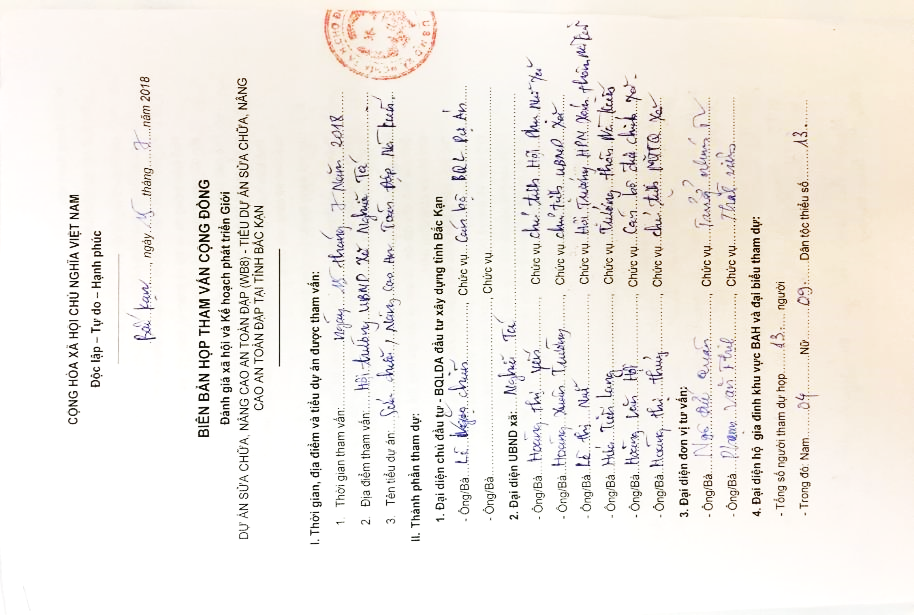 CỘNG HÒA XÃ HỘI CHỦ NGHĨA VIỆT NAM
Độc lập – Tự do – Hạnh phúc
Bắc Kạn, ngày 15 tháng 7 năm 2018
BIÊN BẢN HỌP THAM VẤN CỘNG ĐỒNG
Đánh giá xã hội và Kế hoạch phát triển Giới
DỰ ÁN SỬA CHỮA, NÂNG CAO AN TOÀN ĐẬP (WB8) - TIỂU DỰ ÁN SỬA CHỮA, NÂNG
CAO AN TOÀN ĐẬP TẠI TỈNH BẮC KẠN
I. Thời gian, địa điểm và tiểu dự án được tham vấn:
1. Thời gian tham vấn: Ngày 15 tháng 7 Năm 2018
2. Địa điểm tham vấn: Hội trường UBND Xã Nghĩa Tá
3. Tên tiểu dự án: Sửa chữa, Nâng cao An Toàn Đập Nà
II. Thành phần tham dự:
1. Đại diện chủ đầu tư - BQLDA đầu tư xây dựng tỉnh Bắc Kạn
- Ông/Bà Lê Ngọc, Chức vụ Cán bộ BQL Dự Án
- Ông/Bà, Chức vụ
2. Đại diện UBND xã: Nghĩa Tá
- Ông/Bà Hoàng Thị Yến, Chức vụ chủ tịch Hội Phụ Nữ Xã
- Ông/Bà Hoàng Xuân Trường, Chức vụ chủ tịch UBND Xã
- Ông/Bà Lê Thị, Chức vụ Hội Trưởng HPN thôn Nà
- Ông/Bà Tiến, Chức vụ Trưởng thôn Nà
- Ông/Bà Hoàng Văn Hội, Chức vụ Cán bộ địa chính Xã
- Ông/Bà Hoàng Thị Thuỷ, Chức vụ chủ tịch MTTQ Xã
3. Đại diện đơn vị tư vấn:
- Ông/Bà Ngô Quân, Chức vụ Trưởng nhóm TV
- Ông/Bà Phạm Văn, Chức vụ
4. Đại diện hộ gia đình khu vực BAH và đại biểu tham dự:
- Tổng số người tham dự họp 13 người
- Trong đó: Nam 04 Nữ 09 Dân tộc thiểu số 13